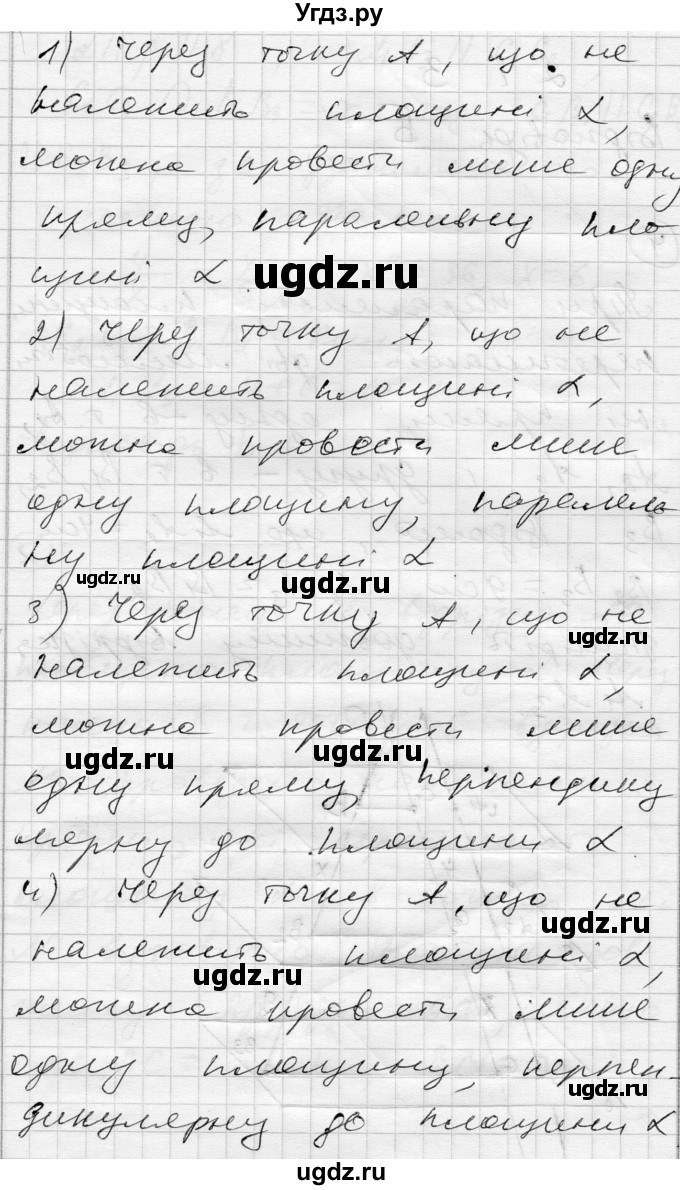 Угдз.ру
1) Через точку А, що не
належить площині α,
можна провести лише одну
пряму, паралельну пло-
щині α
ugdz.ru
2) Через точку А, що не
належить площині α,
можна провести лише
одну площину, паралель
ну площині α
ugdz.ru
ugdz.ru
3) Через точку А, що не
ugdz.ru
належить площині α,
можна провести лише
ugdz.ru
ugdz.ru
одну пряму, перпендику
лярну до площини α
4) Через точку А, що не
ugdz.ru
належить площині α,
ugdz.ru
можна провести лише
одну площину, перпен-
ugdz.ru
дикулярну до площини α
ugdz.ru